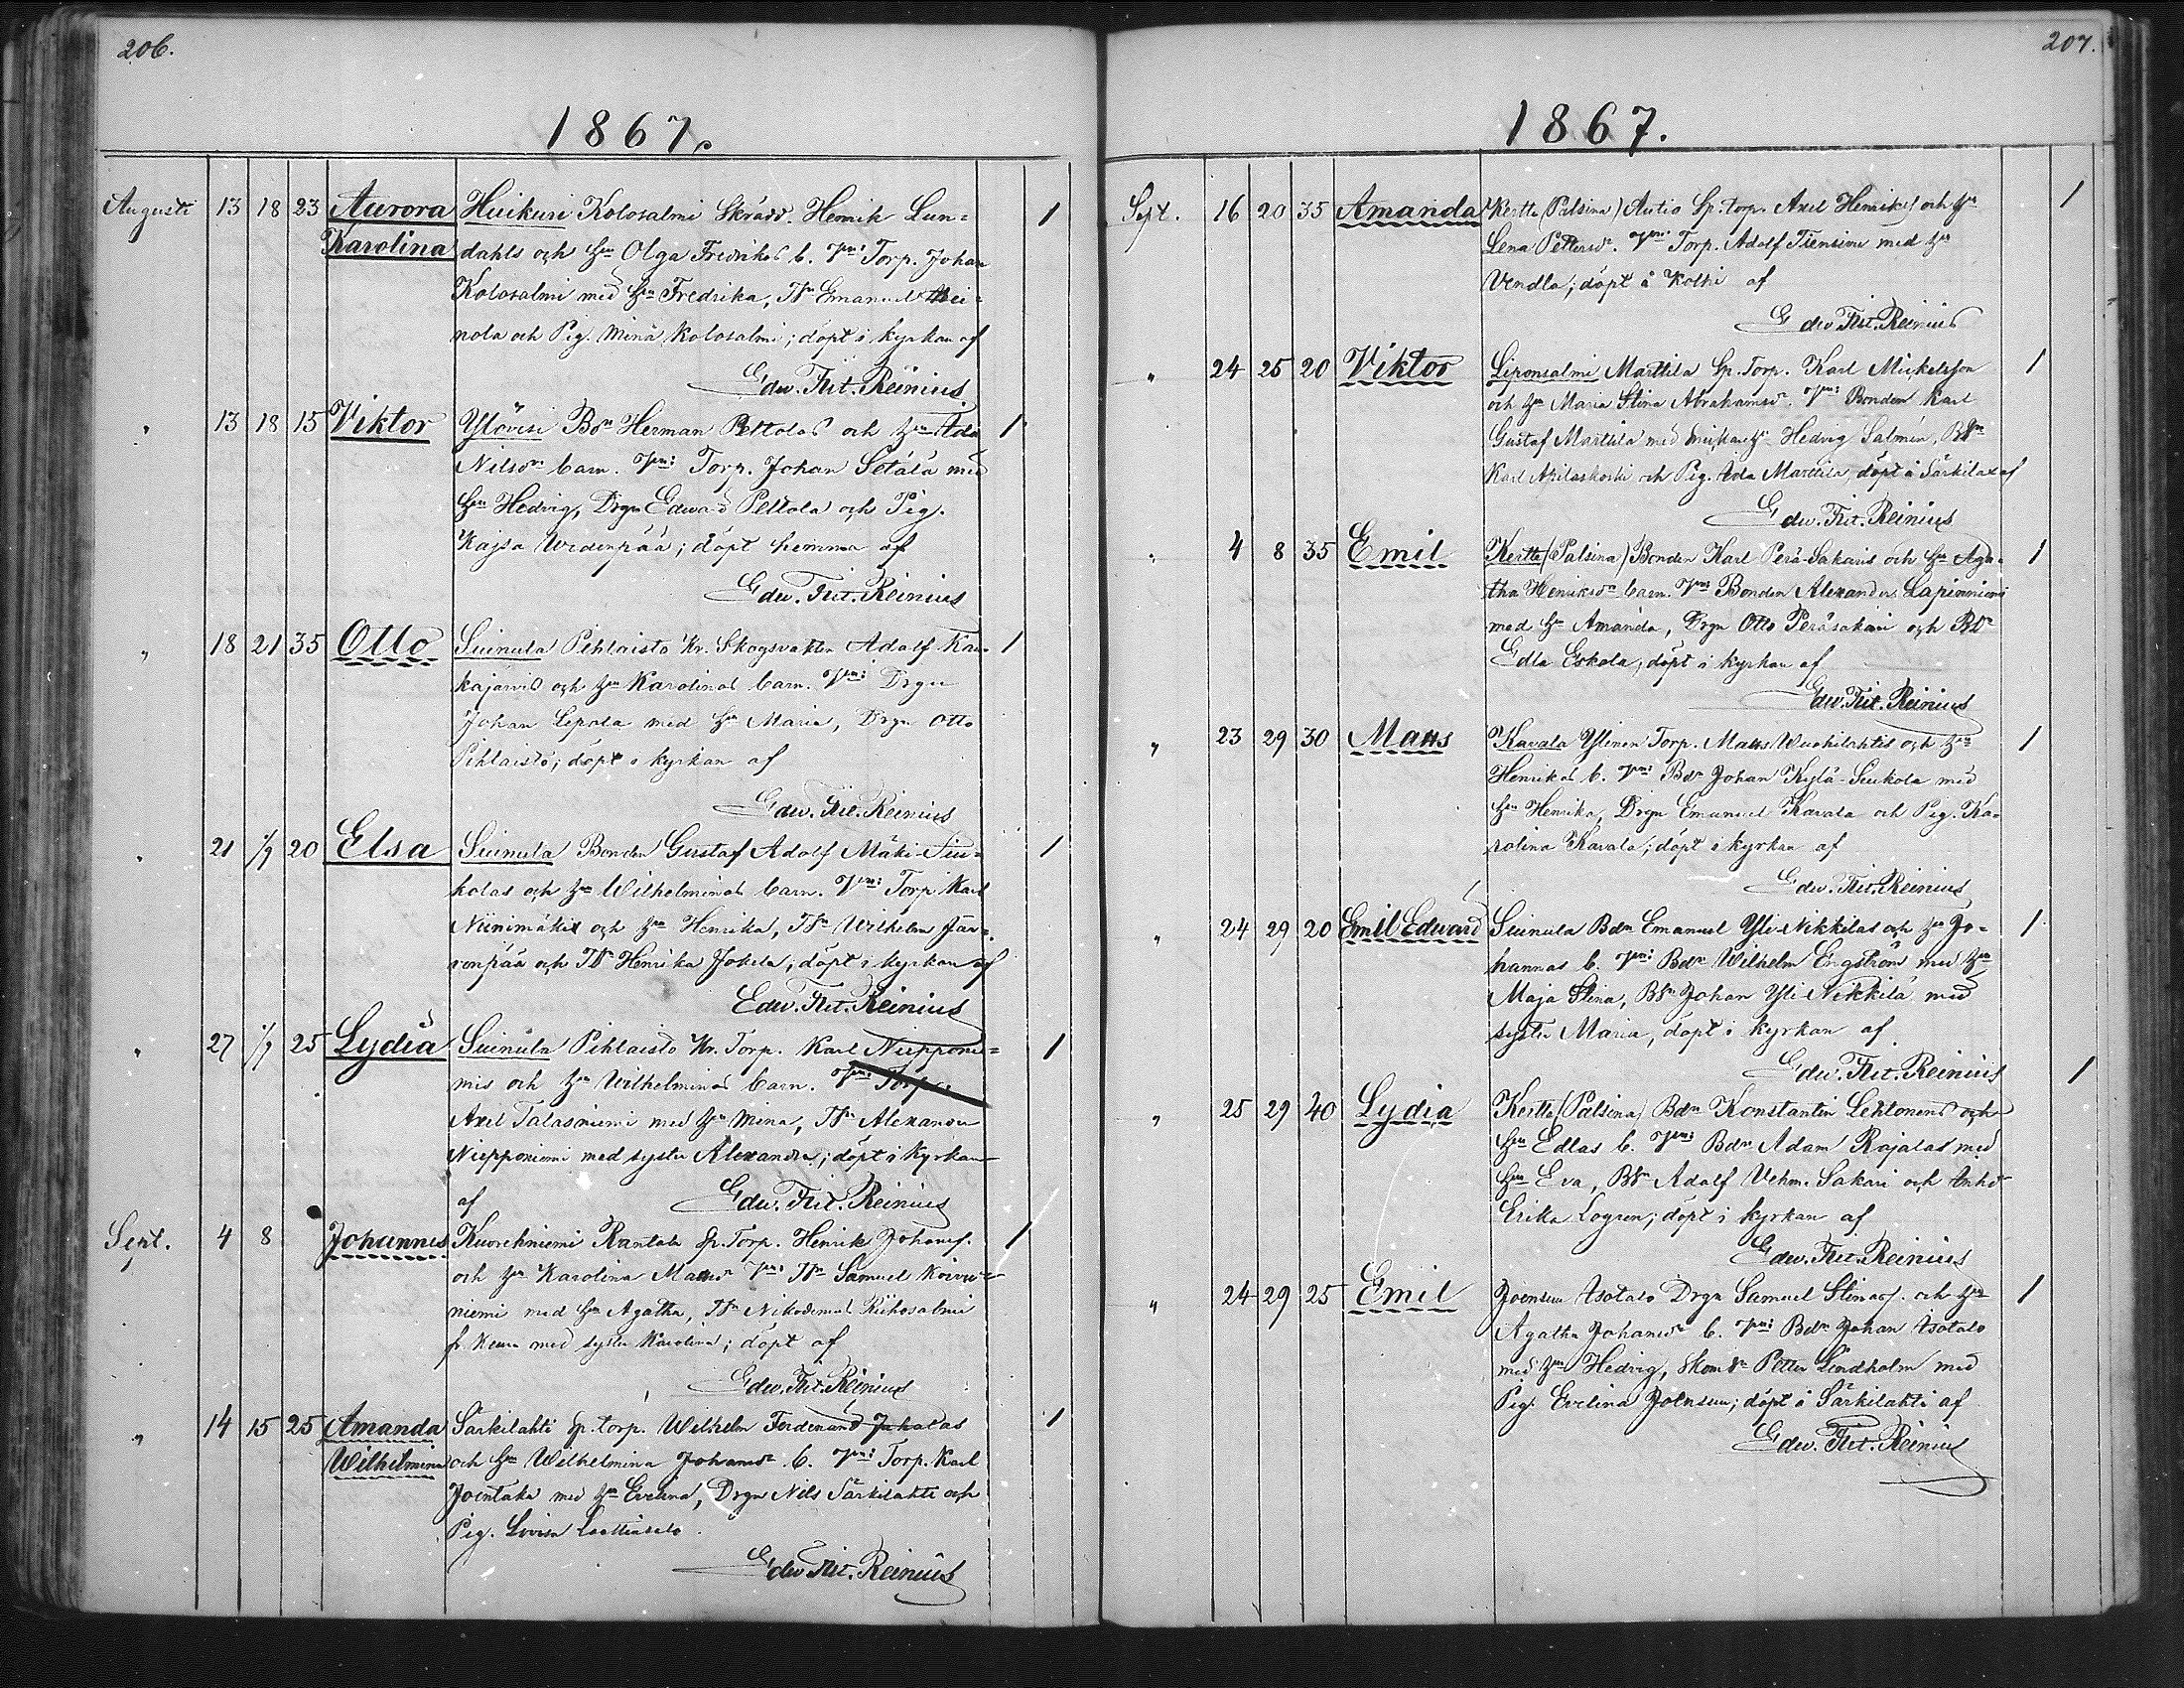 206.
1867.
Augusti 13 18 23 Aurora Huikuri Kolosalmi Skrädd. Henrik Lun=
Karolina dahls och Hu Olga Fredrikas b. Torp. Johan
Kolosalmi med Hu Fredrika, Emanuel Hei=
nola och Pig. Mina Kolosalmi; döpt i kyrkan af
Edw. Frit. Reinius
" 13 18 15 Viktor Ylövesi Bdn Herman Peltolas och Hu Ada
Nilsdr barn. Torp. Johan Setälä med
Hu Hedvig, Drgn Edward Peltola och Pig.
Kajsa Wedenpää; döpt hemma af
Edw. Frit. Reinius
" 18 21 35 Otto Suinula Pihlaisto Kr. Skogsvakten Adolf
kajarvis och Hu Karolinas barn. Drgn
Johan Lepola med Hu Maria, Drgn Otto
Pihlaisto; döpt i kyrkan af
Edw. Frit. Reinius
" 21 1/9 20 Elsa Suinula Bonden Gustaf Adolf Mäki-Siu=
kolas och Hu Wilhelminas barn. Torp Karl
Niinimäki och Hu Henrika, Wilhelm Jär=
venpää och Henrika Jokela; döpt i kyrkan af
Edw. Frit. Reinius
" 27 1/9 25 Lydia Suinula Pihlaisto Kr. Torp. Karl Niepponie=
mis och Hu Wilhelminas barn. Torp.
Axel Talasniemi med Hu Mina, Alexander
Niepponiemi med syster Alexandra; döpt i Kyrkan
af Edw. Frit. Reinius
Sept. 4 8 Johannes Kuorehniemi Rantala Sp. Torp. Henrik Johansf.
och Hu Karolina Mattsdr Samuel Koivu=
niemi med Hu Agatha, Nikodemus Riihosalmi
fr. Keuru med syster Karolina; döpt af
Edw. Frit. Reinius
" 14 15 25 Amanda Särkilahti Sp. torp. Wilhelm Ferdinand
Wilhelmina och Hu Wilhelmina Johansdr b. Torp. Karl
med Hu Evelina, Drgn Nils Särkilahti och
Pig. Lovisa
Edw Frit. Reinius
207.
1867.
Sept. 16 20 35 Amanda Kertte (Palsina) Autio Sp. torp. Axel Henriks och Hu
Lena Pettersdr. Torp. Adolf med Hu
Vendla; döpt å Kolhi af
Edw Frit. Reinius
" 24 25 20 Viktor Liponsalmi Marttila Sp. Torp. Karl Mickelsson
och Hu Maria Stina Abrahamsdr. Bonden Karl
Gustaf Marttila med Hedvig Salmén,
Karl och Pig. Ada Marttila, döpt å Särkilax af
Edw. Frit. Reinius
" 4 8 35 Emil Kertte (Palsina) Bonden Karl Perä-Sakaris och Hu Aga=
tha Henriksdr barn. Bonden Alexander Lapinniemi
med Hu Amanda, Drgn Otto Peräsakari och
Edla Eskola; döpt i kyrkan af
Edw. Frit. Reinius
" 23 29 30 Matts Kavala Ylinen Torp. Matts Wuohilahtis och Hu
Henrikas b. Bdn Johan Kylä-Siukola med
Hu Henrika, Drgn Emanuel Kavala och Pig. Ka=
rolina Kavala; döpt i kyrkan af
Edw. Frit. Reinius
" 24 29 20 Emil Edward Suinula Bdn Emanuel Yli-Nikkilas och Hu Jo=
hannas b. Bdn Wilhelm Engström med Hu
Maja Stina, Johan Yli-Nikkilä med
syster Maria, döpt i kyrkan af
Edw. Frit. Reinius
" 25 29 40 Lydia Kertte (Palsina) Bdn Konstantin Lehtonens och
Hu Edlas b. Bdn Adam Rajalas med
Hu Eva, Adolf Vehm. Sakari och
Erika Logren; döpt i kyrkan af
Edw. Frit. Reinius
" 24 29 25 Emil Joensuu Isotalo Drgn Samuel och Hu
Agatha Johansdr b. Bdn Johan Isotalo
med Hu Hedvig, Petter Lindholm med
Pig. Evelina Joensuu; döpt å Särkilahti af
Edw. Frit. Reinius